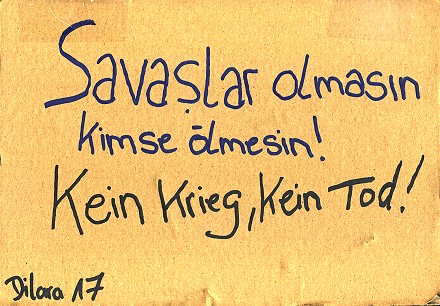 Savaşlar olmasın
kimse ölmesin!
Kein Krieg, Kein Tod!
Dilara 17